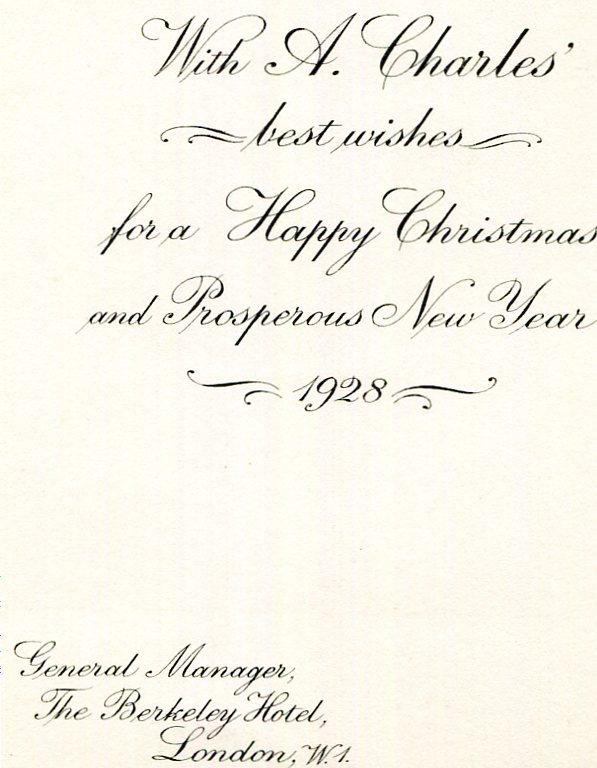 With A. Charles'
best wishes
for a Happy Christmas
and Prosperous New Year
1928
General Manager,
The Berkeley Hotel,
London, W.1.